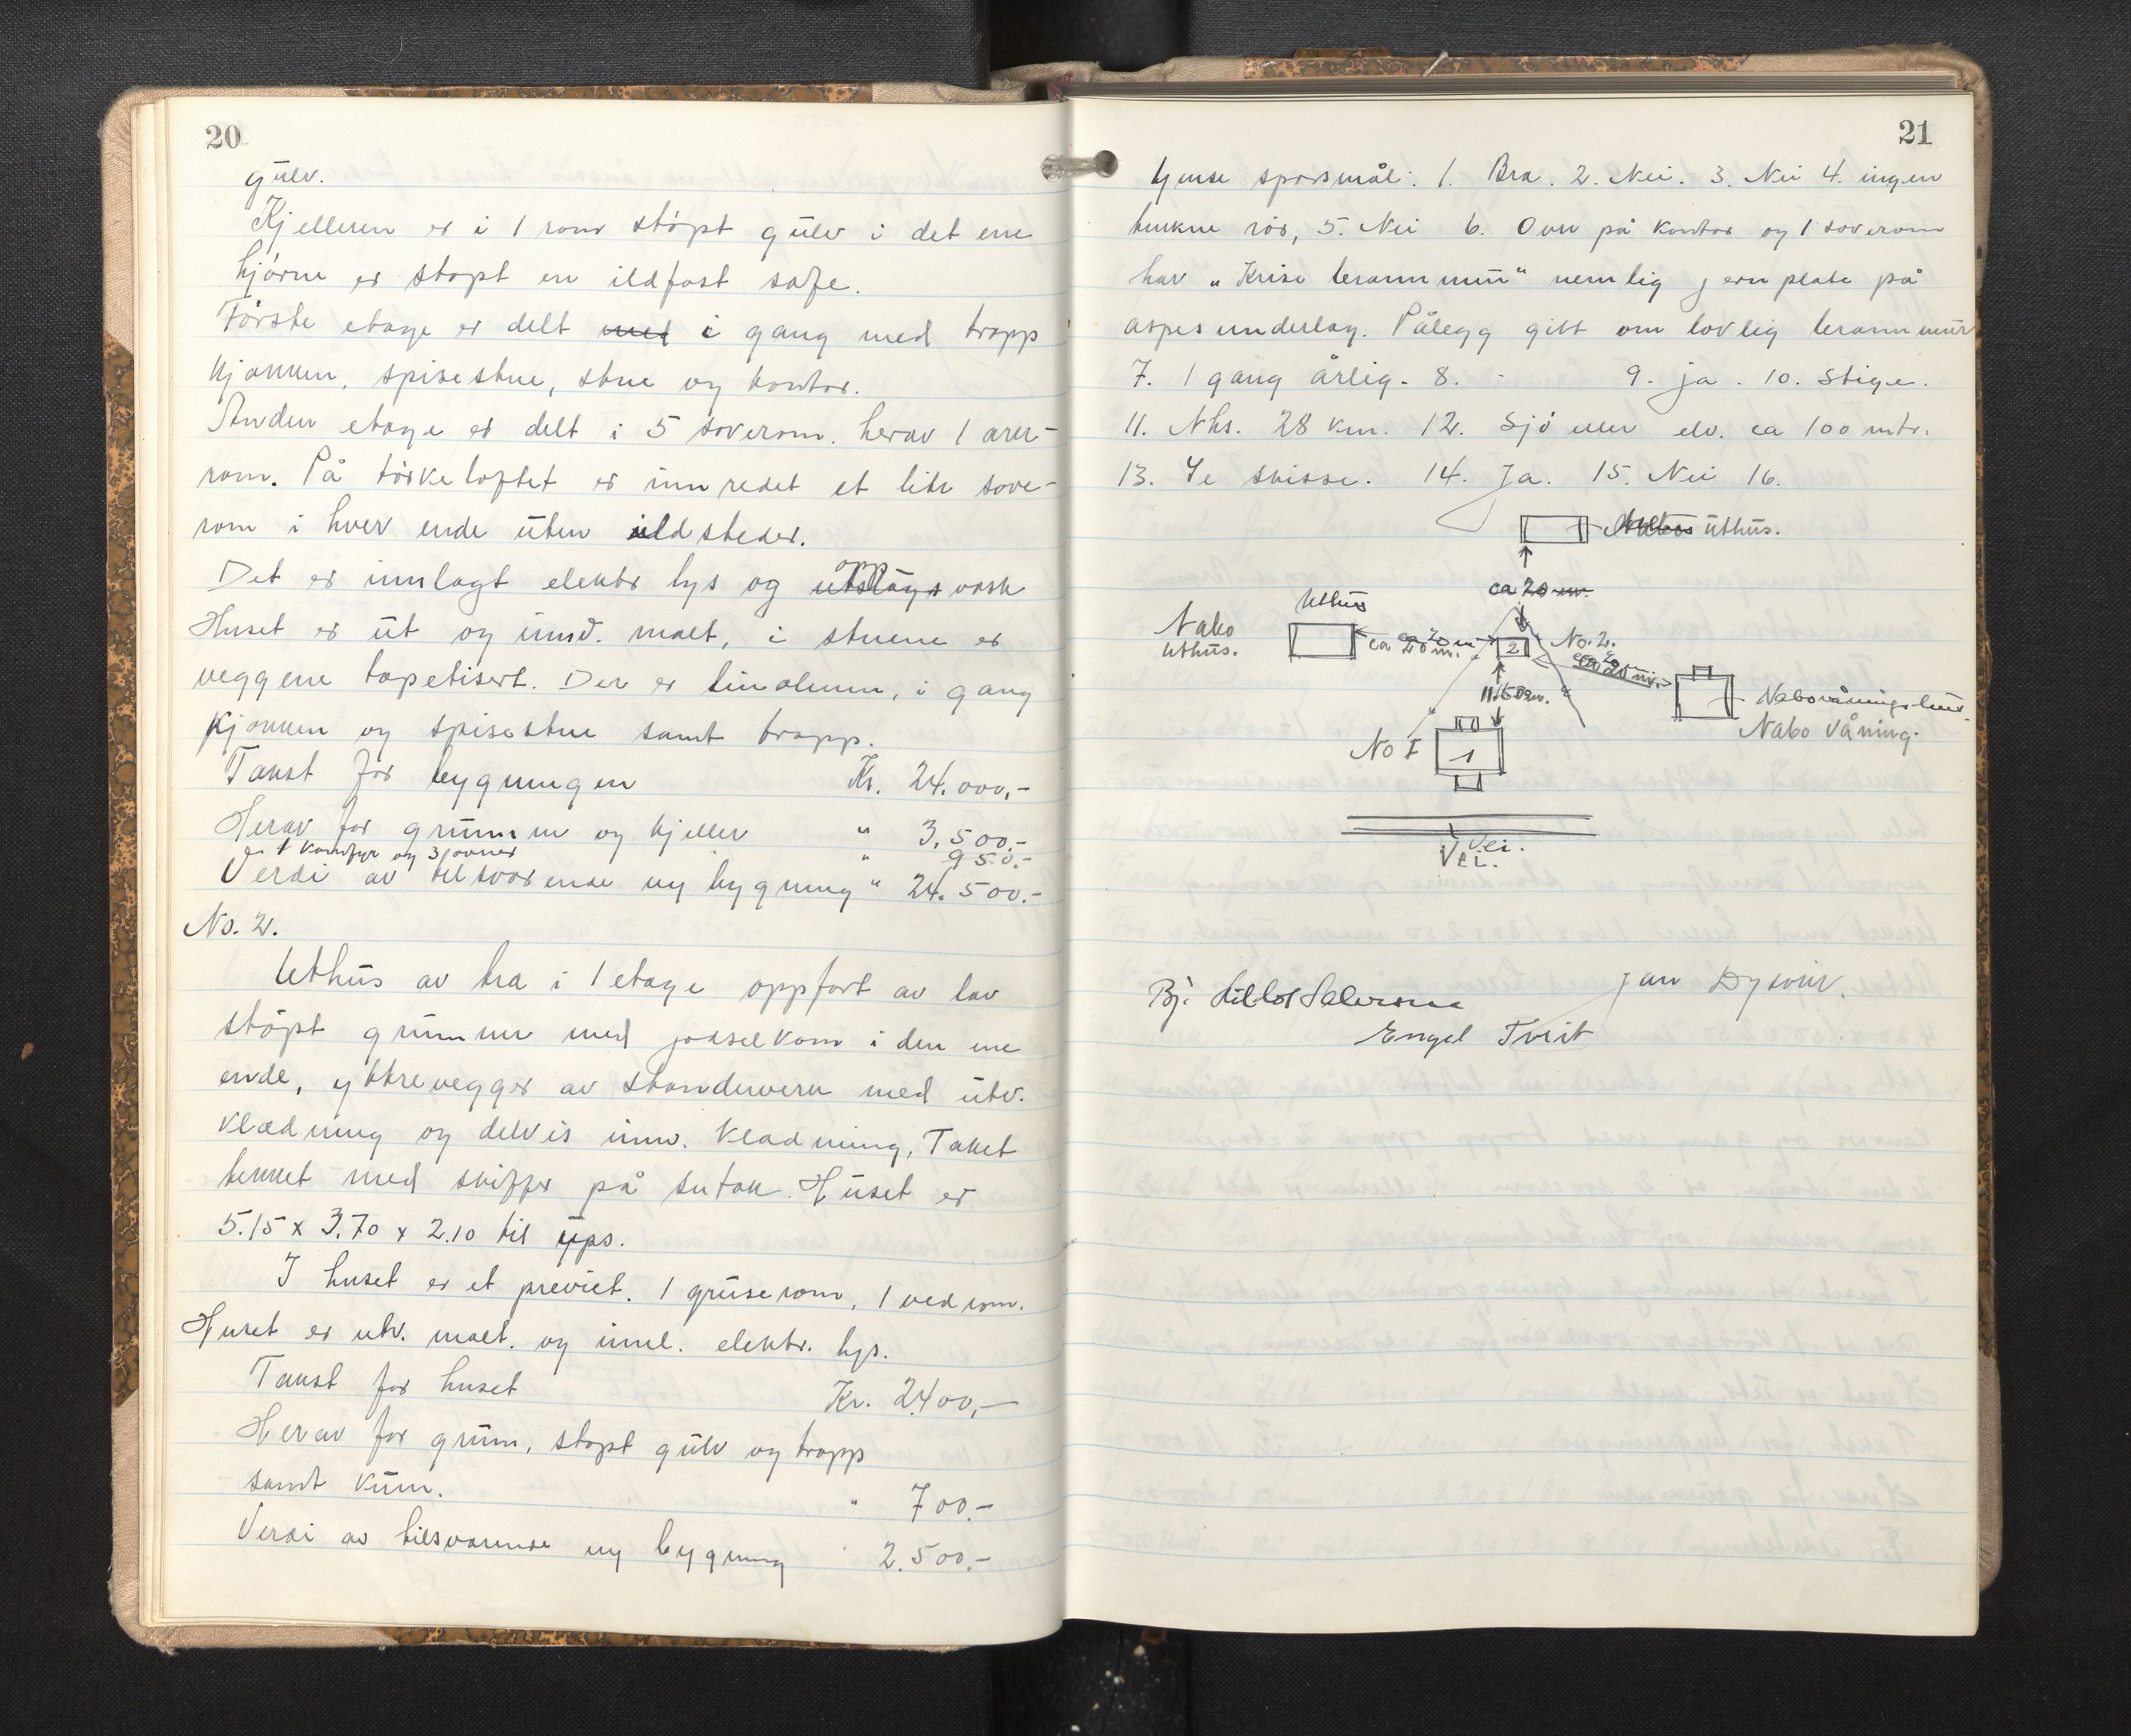 20
gulv.
Kjelleren er i 1 rom støpt gulv i det ene
hjørne er støpt en ildfast safe.
Første etage er delt med i gang med trapp
kjøkken, spisestue, stue og kontor.
Anden etage er delt i 5 soverom. herav 1 ark-
rom. På tørkeloftet er innredet et lite sove-
rom i hver ende uten ildsteder.
Det er innlagt elektr lys og utslags opp vask
Huset er ut og innv. malt, i stuene er
veggene tapetisert. Der er linoleum, i gang
kjøkken og spisestue samt trapp.
Takst for bygningen Kr. 24.000,-
Herav for grunnm og kjeller " 3,500.-
1 komfyr og 3 ovner " 950.-
Verdi av tilsvarende ny bygning " 24.500.-
No. 2.
Uthus av tre i 1 etage oppført av lav
støpt grunnmur med gjødselkom i den ene
ende, yttrevegger av standerverk med utv.
klædning og delvis innv. klædning, Taket
tekket med skiffer på sutak. Huset er
5.15 x 3.70 x 2.10 til ups.
I huset er et previet. 1 gruserom, 1 vedrom.
Huset er utv. malt. og innl. elektr. lys.
Takst for huset Kr. 2400,-
Herav for grunn, støpt gulv og trapp
samt kum. " 700.-
Verdi av tilsvarende ny bygning " 2.500.-
21
Ymse spørsmål: 1. Bra. 2. Nei. 3. Nei 4. ingen
trukne rør, 5. Nei 6. Ovn på kontor og 1 soverom
har "Krise brannmur" nemlig jernplate på
aspesunderlag. Pålegg gitt om lovlig brannmur
7. 1 gang årlig. 8. - 9. ja. 10. Stige.
11. Nhs. 28 km. 12. Sjø eller elv. ca 100 mtr.
13. Se skisse. 14. Ja. 15. Nei 16.
uthus.
ca 20 m.
Uthus
Nabo
uthus.
ca 20 m.
2
No. 2.
ca 20 m.
11.50 m.
Nabovåningshus.
Nabo våning.
No I
1
Vei.
Vei.
Jan Dysvik.
Engel Tveit